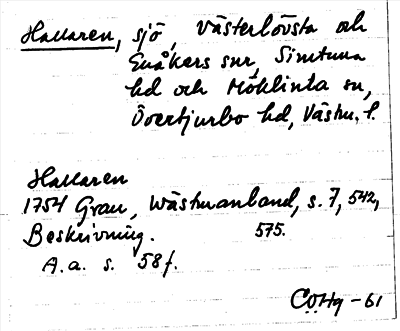 Hallaren, sjö, Västerlövsta och
Enåkers snr, Simtuna
hd och Möklinta sn,
Övertjurbo hd, Västm. l.
Hallaren
1754 Grau, Wästmanland, s. 7, 542,
Beskrivning. 575.
A.a. s. 58f.
CÖHg -61